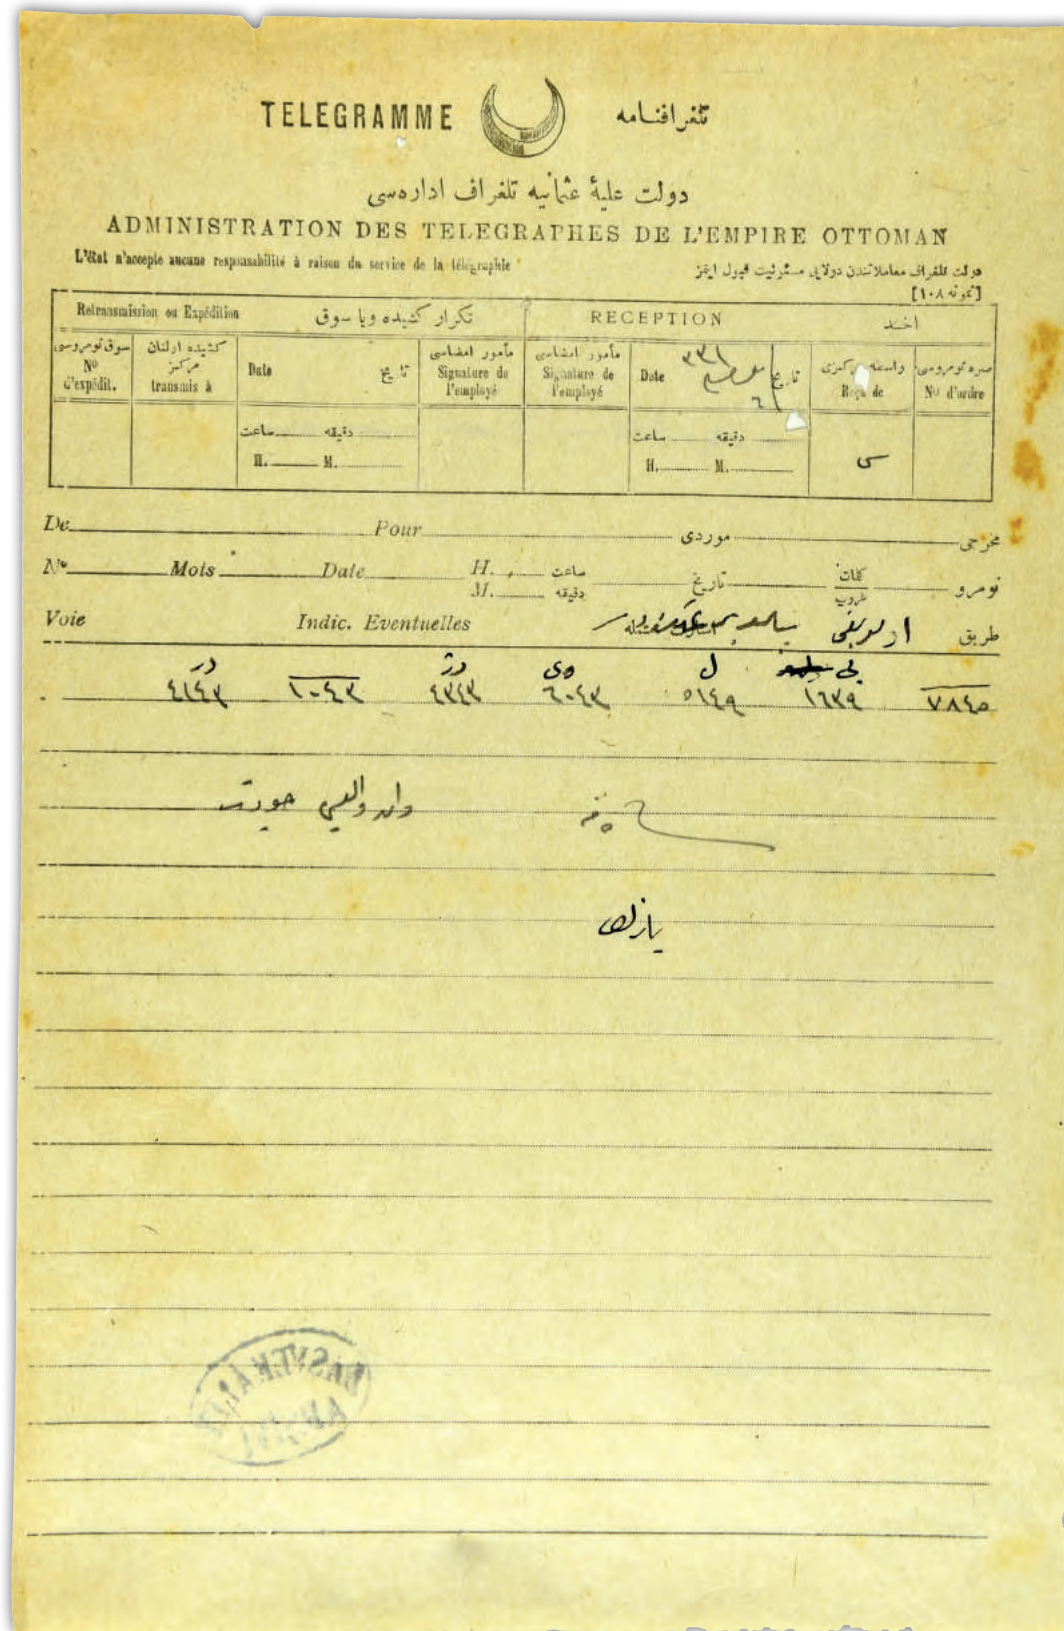 TELEGRAMME تلغرافنامه
دولت عليۀ عثمانيه تلغراف اداره‌سی
ADMINISTRATION DES TELEGRAPHES DE L'EMPIRE OTTOMAN
L'état n'accepte aucune responsabilité à raison du service de la télégraphie
دولت تلغراف معاملاتندن دولايی مسئوليت قبول ايتمز
[نمونه ١٠٨]
Retransmission ou Expédition تكرار كشيده ويا سوق RECEPTION اخذ
سوق نومروسی No d'expédit.
كشيده اولنان مركز transmis à
Date تاريخ
مأمور امضاسی Signature de l'employé
مأمور امضاسی Signature de l'employé
Date ٣٣١ تاريخ
واسطه مركزی Reçu de
صره نومروسی No d'ordre
ساعت دقيقه
H. M.
ساعت دقيقه
H. M.
De Pour موردی مخرجی
No Mots Date H. M. ساعت دقيقه تاريخ كلمات غروپ نومرو
Voie Indic. Eventuelles طريق
بی ل وی در در
٧٨٤٥ ١٦٣٩ ٥١٤٩ ٦٠٤٣ ٤٣٤٣ ١٠٤٣ ٤١٤٣
وان واليسی جودت